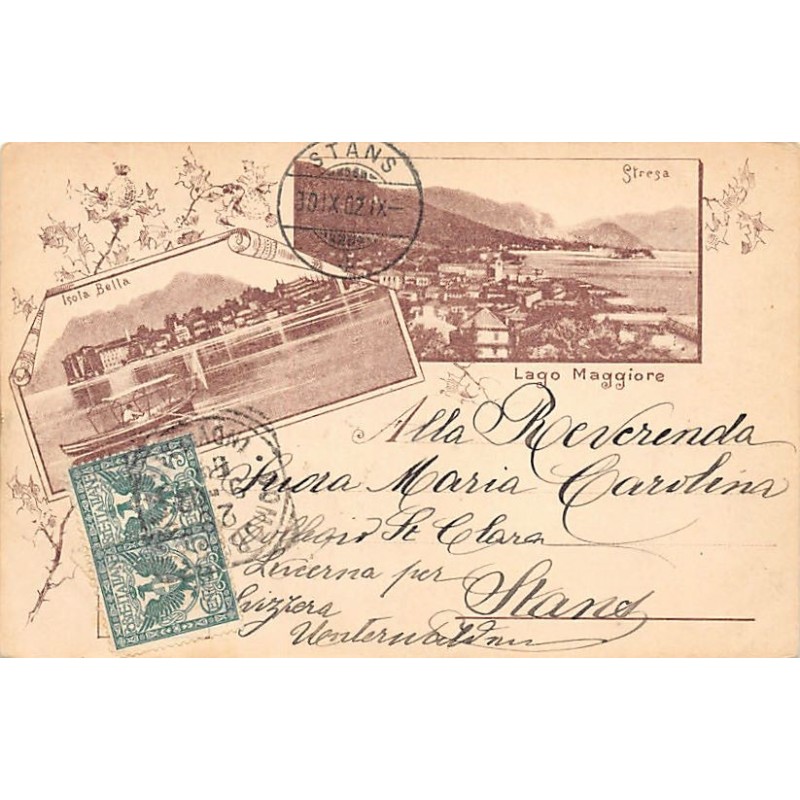 STANS
30.IX.02.IX-
Stresa
Isola Bella
Lago Maggiore
Alla Reverenda
Suora Maria Carolina
Collegio St Clara
Lucerna per Stans
Svizzera
Unterwalden